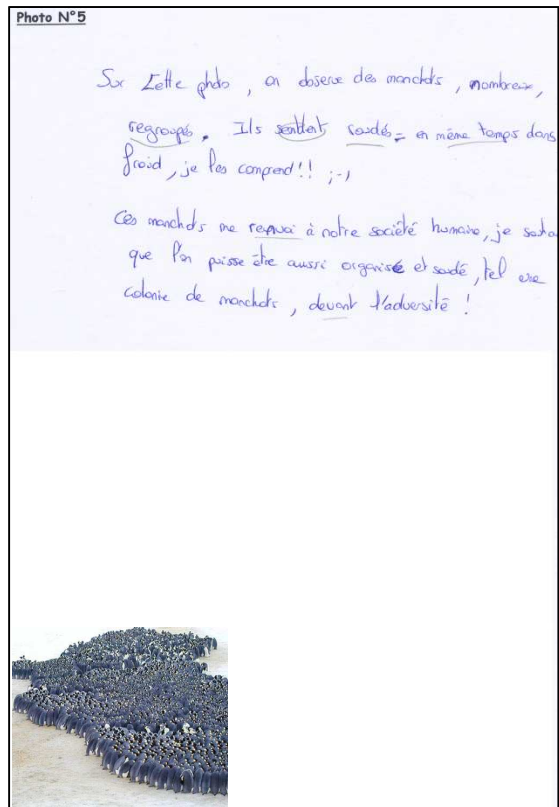 Photo N°5
Sur cette photo, on observe des manchots, nombreux,
regroupés. Ils semblent soudés = en même temps dans
froid, je les comprend!! ;-)
Ces manchots me renvoi à notre société humaine, je
que l'on puisse être aussi organisé et soudé, tel une
colonie de manchots, devant l'adversité !